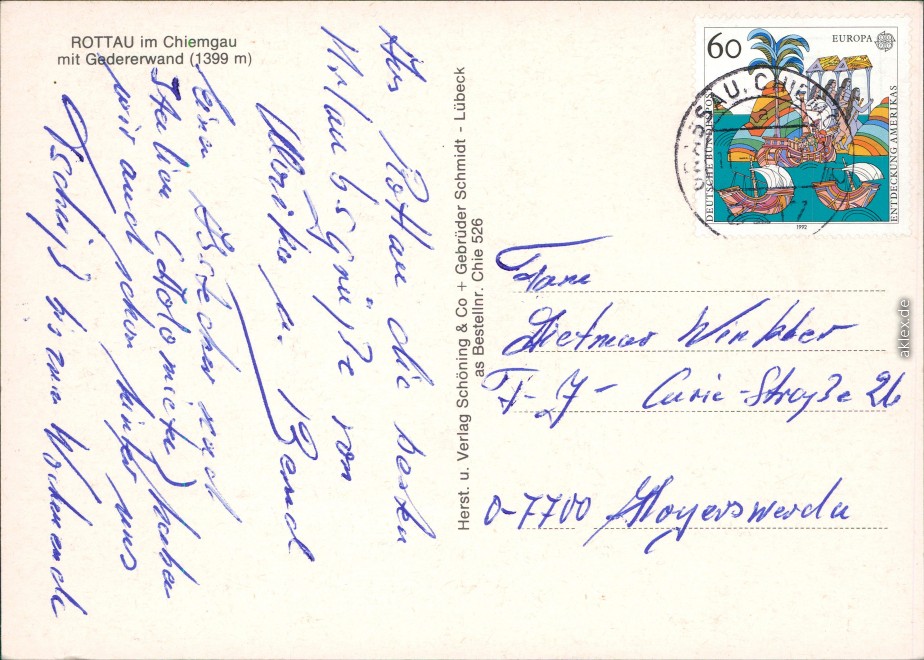 ROTTAU im Chiemgau
mit Gedererwand (1399 m)
Aus Rottau die besten
Urlaubsgrüße von
Marika u. Bernd
einen Abstecher nach
Italien (Dolomiten) haben
wir auch schon hinter uns
Tschüß bis zum Wochenende
Herst. u. Verlag Schöning & Co + Gebrüder Schmidt - Lübeck
as Bestellnr. Chie 526
60
EUROPA
DEUTSCHE BUNDESPOST
ENTDECKUNG AMERIKAS
1992
Fam.
Dietmar Winkler
F.-J.- Curie-Straße 26
O-7700 Hoyerswerda
aklex.de